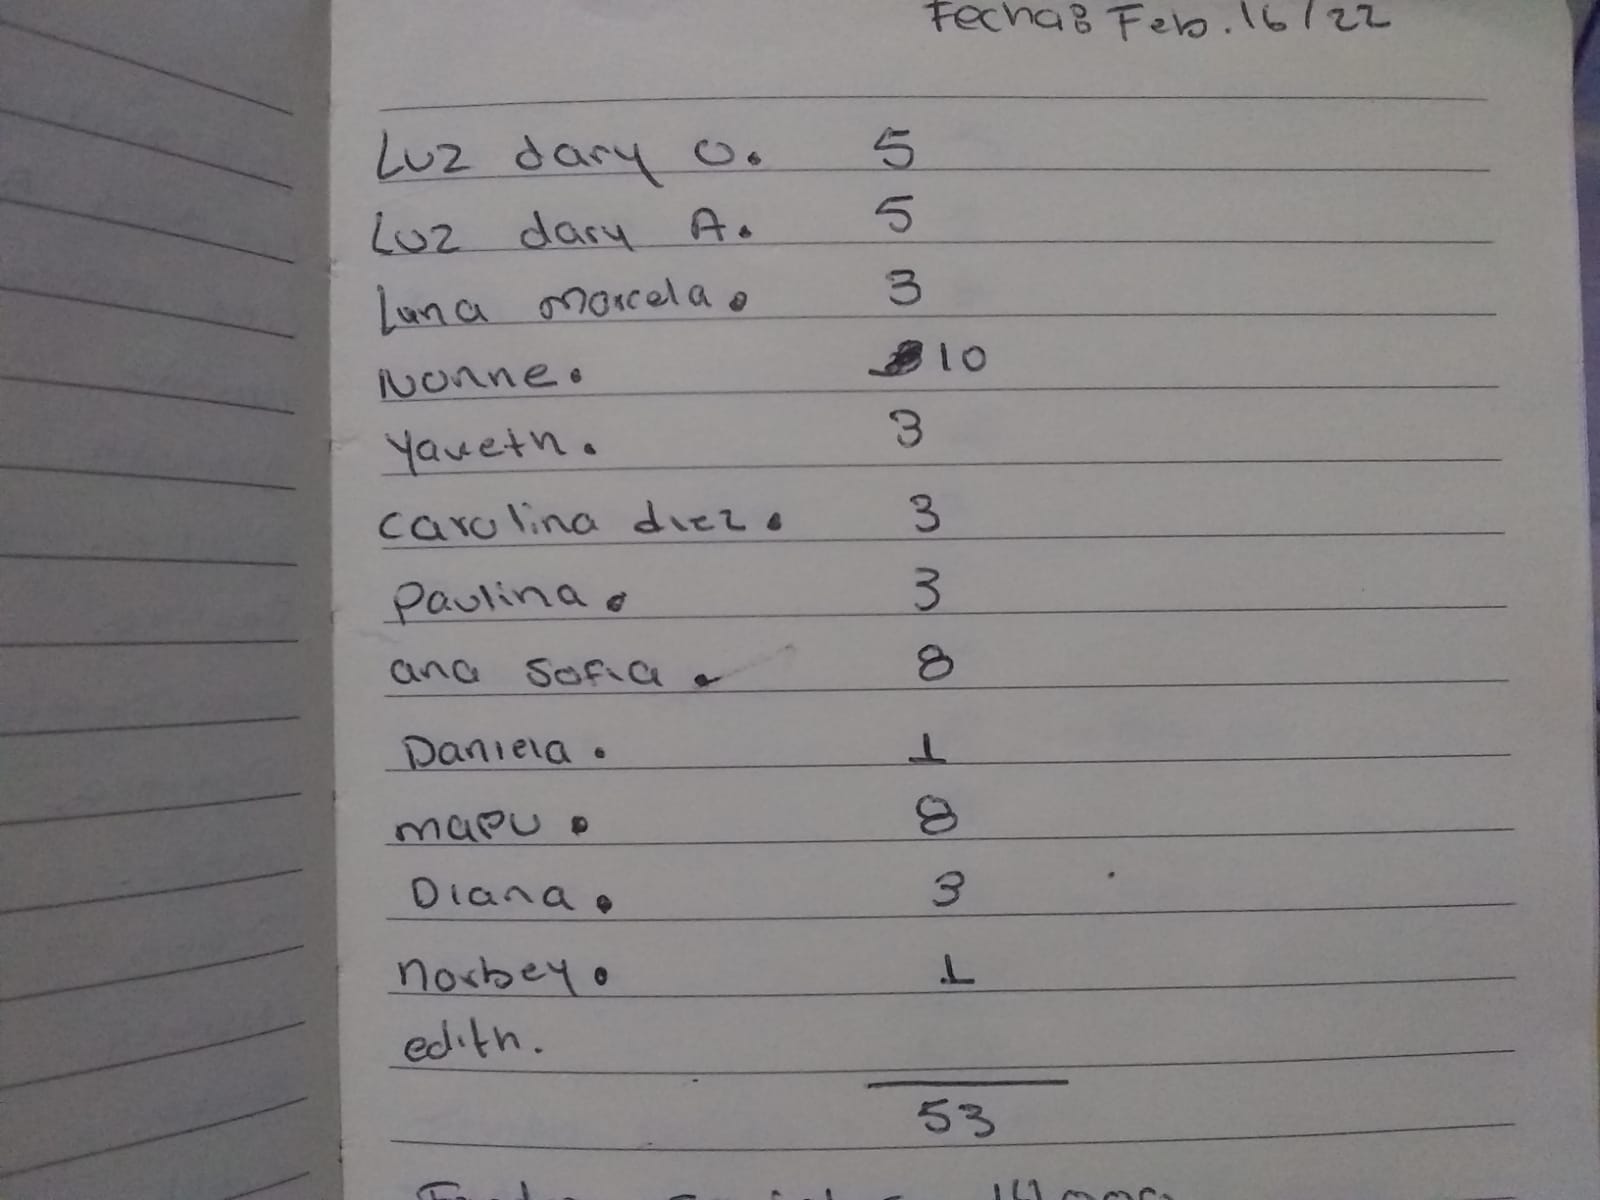 Fecha: Feb. 16/22
Luz dary O. 5
Luz dary A. 5
Luna marcela. 3
Ivonne. 10
Yaveth. 3
carolina diez. 3
Paulina. 3
ana Sofia. 8
Daniela. 1
mapu. 8
Diana. 3
norbey. 1
edith.
53